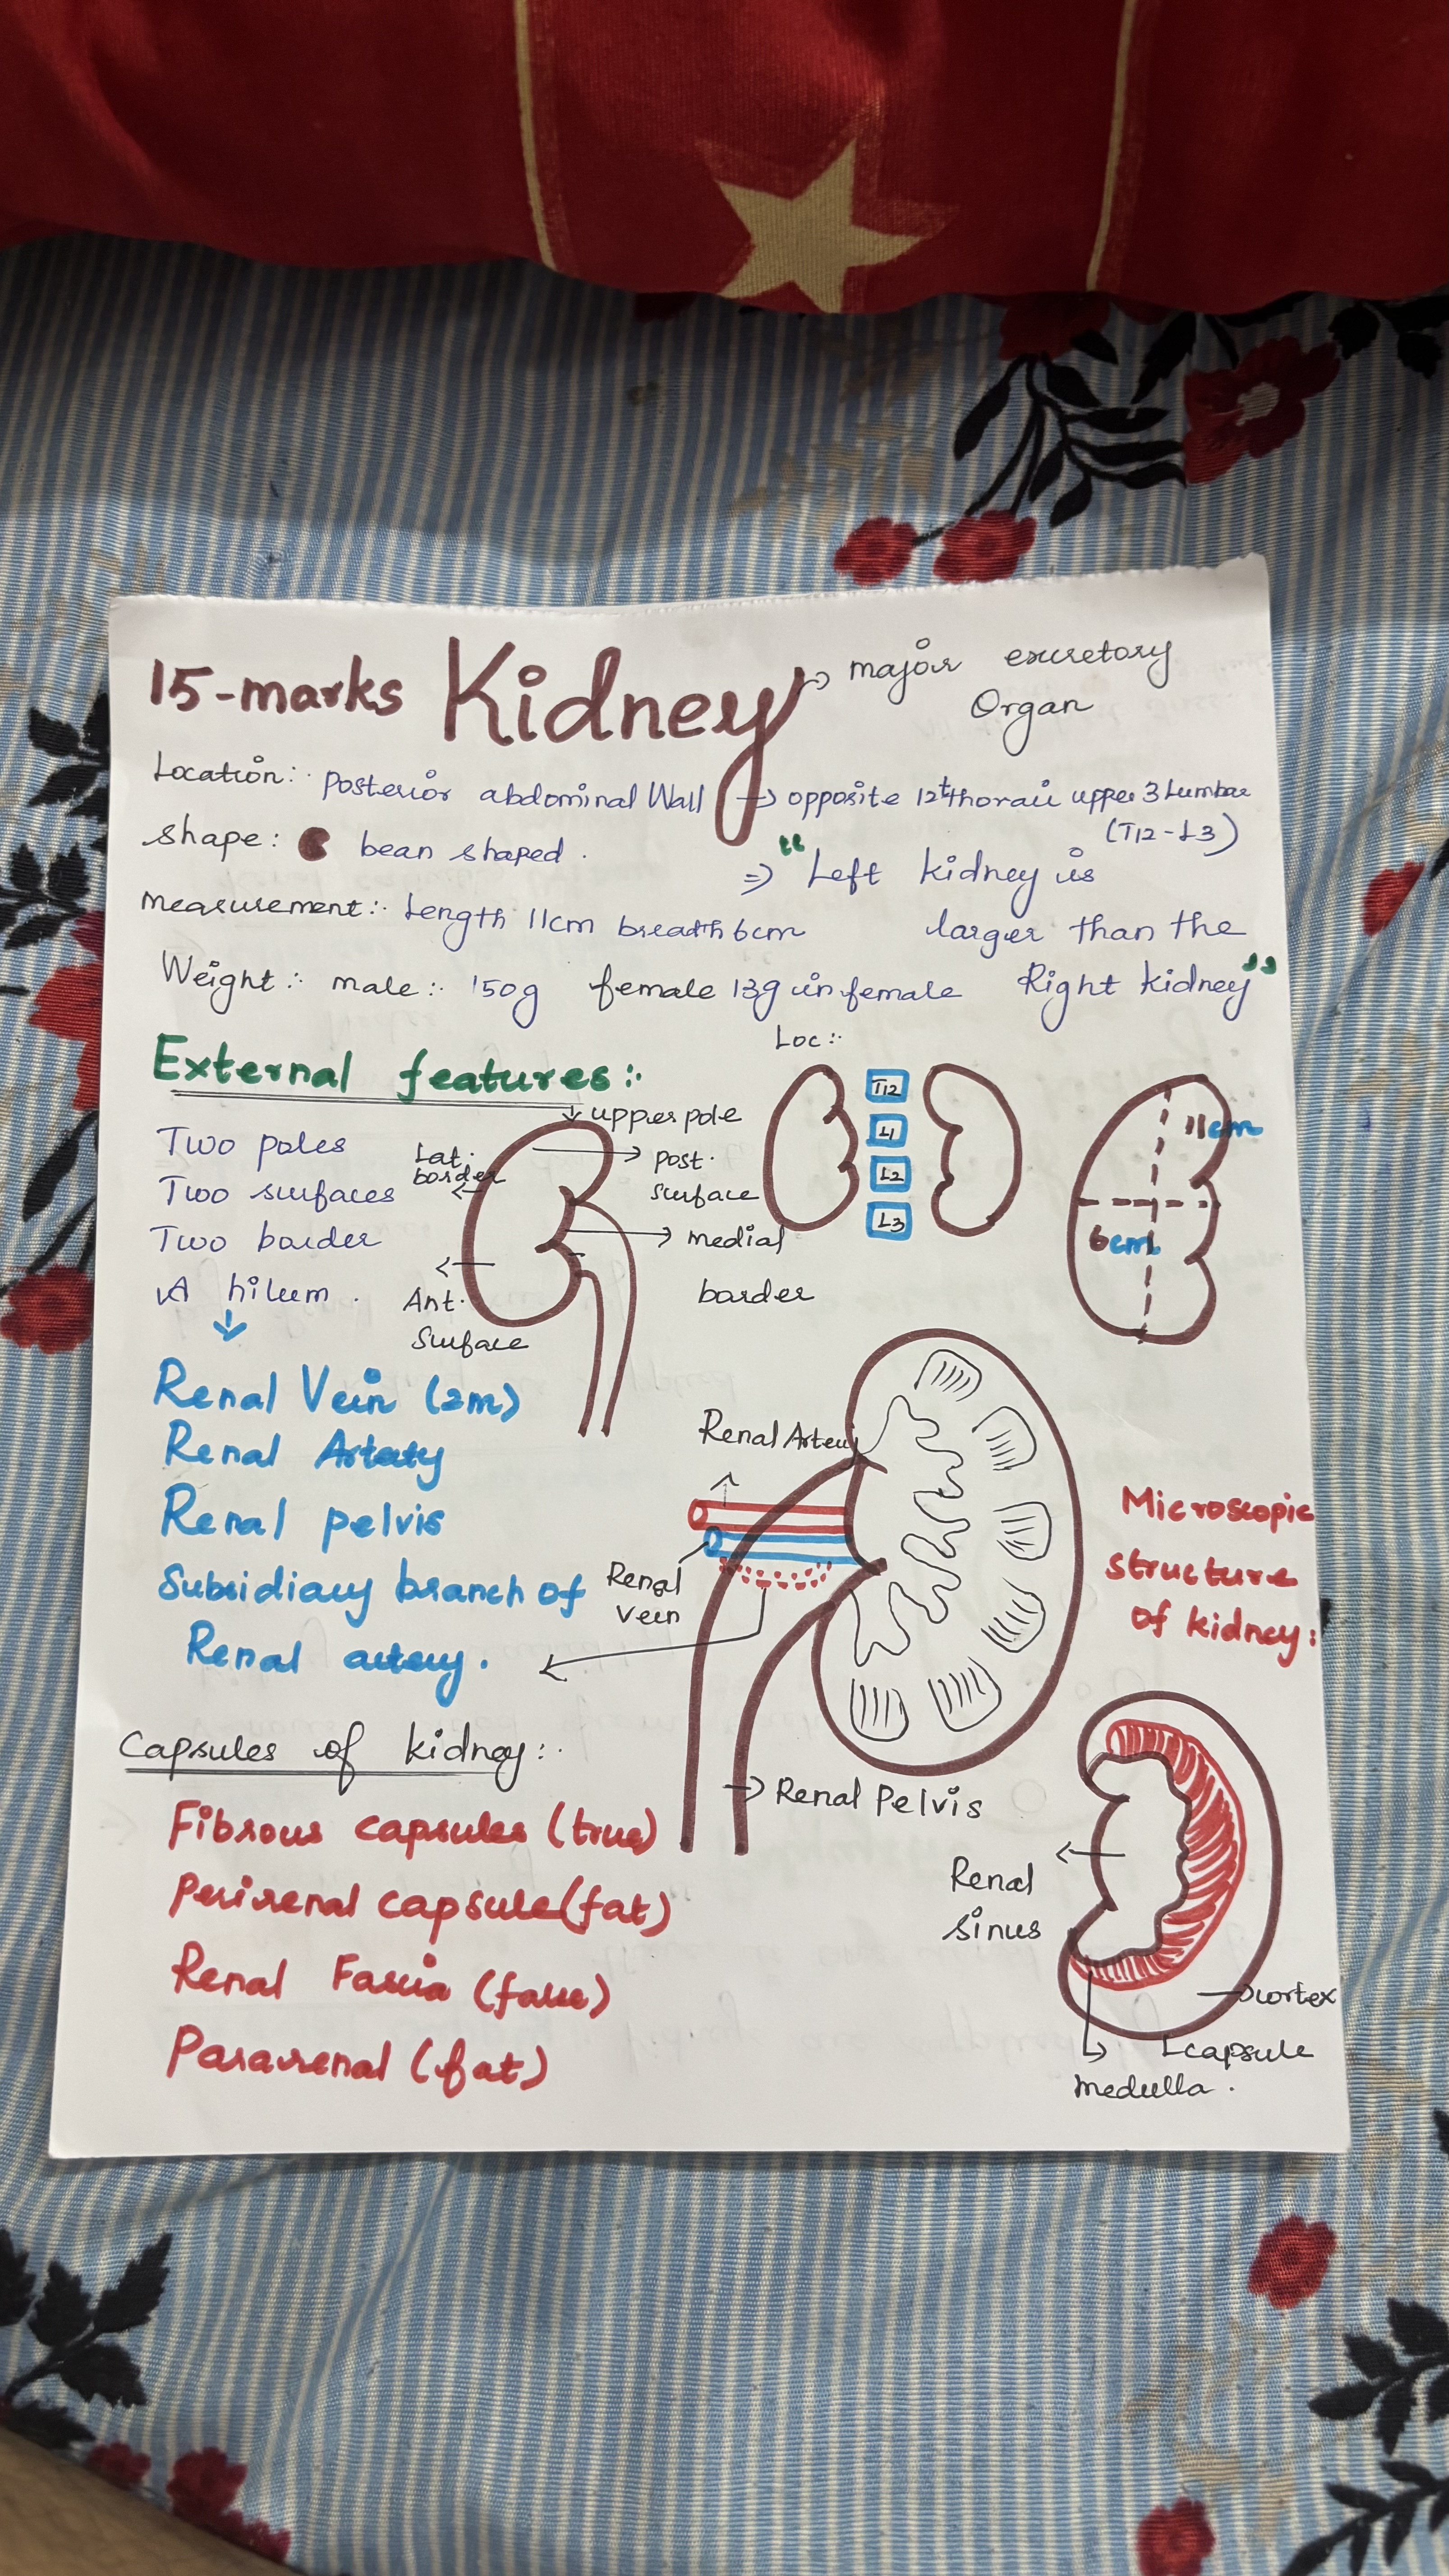 15-marks Kidney → major excretory
Organ
Location:· Posterior abdominal Wall → opposite 12th thoraic upper 3 Lumbar
(T12-L3)
shape: bean shaped.
⇒ "Left kidney is
larger than the
Right kidney"
measurement:· Length 11cm breadth 6cm
Weight:· male:· 150g female 13g in female
External features:·
Two poles
Two surfaces
Two border
A hilum.
↓
Renal Vein (2m)
Renal Artery
Renal pelvis
Subsidiary branch of
Renal artery.
upper pole
Lat.
border
post.
surface
medial
border
Ant.
Surface
Loc:·
T12
L1
L2
L3
11cm
6cm
Renal Artery
Renal
vein
Renal Pelvis
Microscopic
structure
of kidney:
Renal
sinus
cortex
capsule
medulla.
Capsules of kidney:·
Fibrous capsules (true)
Perirenal capsule (fat)
Renal Fascia (false)
Pararenal (fat)